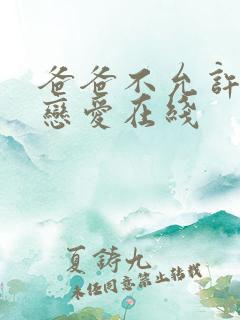 爸爸不允許
戀愛在綫
夏鋳九
未经同意禁止转载